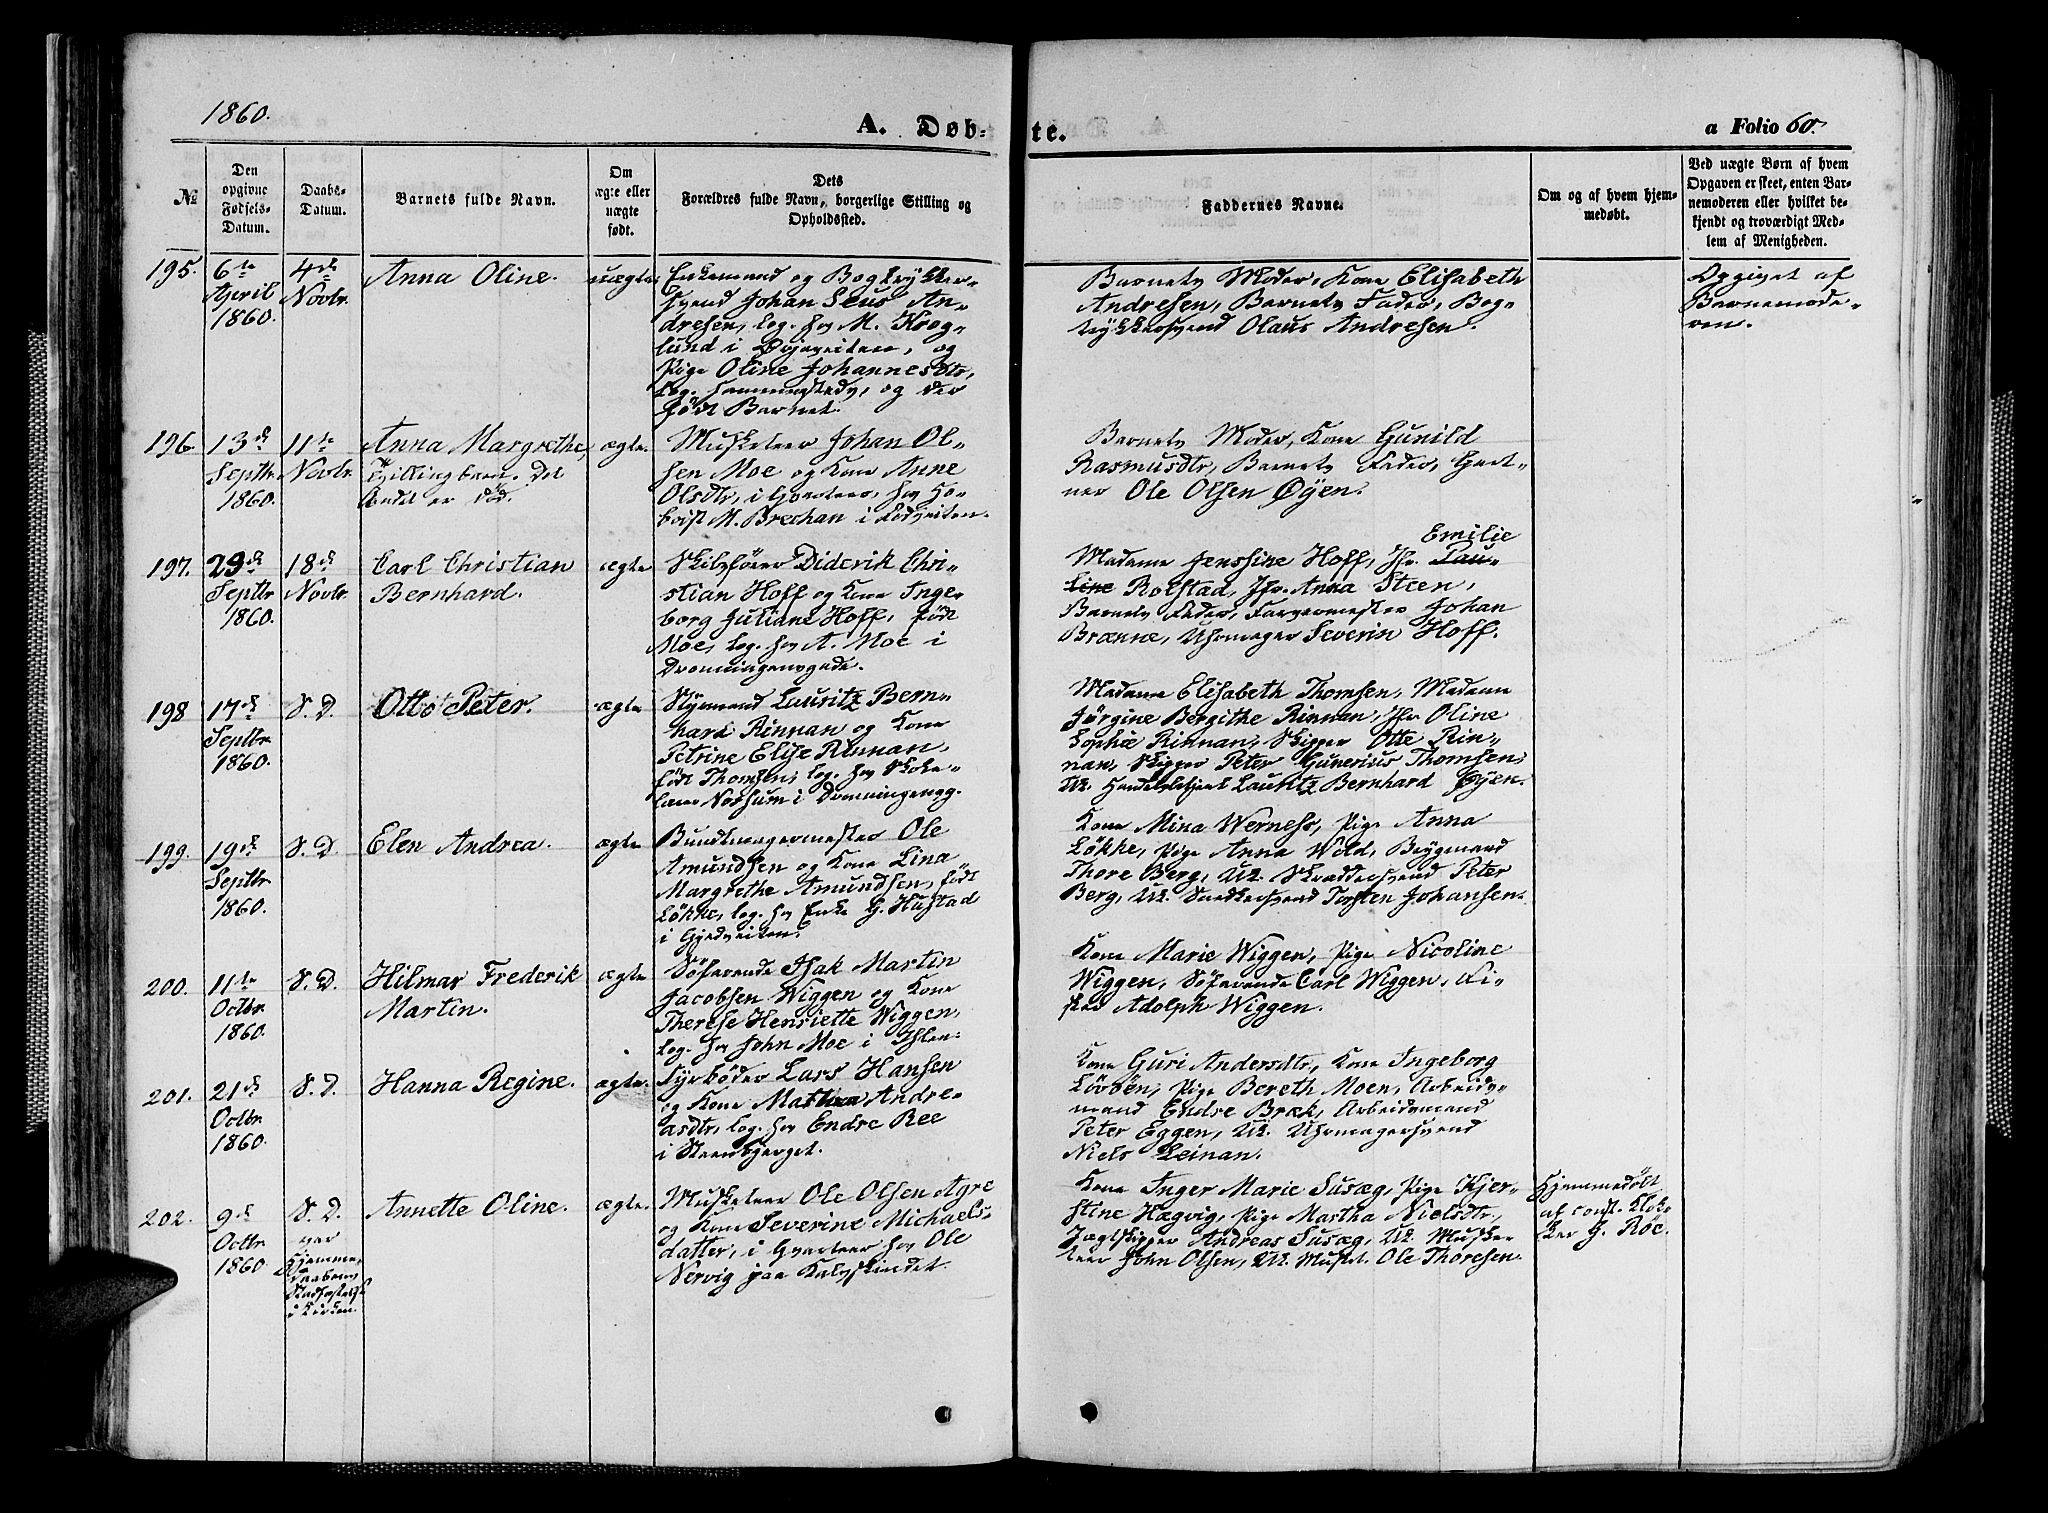 1860.
A. Døbte.
a Folio 60.
№
Den opgivne Fødsels-Datum.
Daabs-Datum.
Barnets fulde Navn.
Om ægte eller uægte født.
Dets Forældres fulde Navn, borgerlige Stilling og Opholdssted.
Faddernes Navne.
Om og af hvem hjemmedøbt.
Ved uægte Børn af hvem Opgaven er skeet, enten Barnemoderen eller hvilket bekjendt og troværdigt Medlem af Menigheden.
195.
6te April 1860.
4de Novbr
Anna Oline.
uægte
Enkemand og Bogtrykker-
svend Johan Olaus An-
dresen, log. hos M. Krog-
lund i Østerveiten, og
Pige Oline Johannesdtr,
log. sammesteds, og der
født Barnet.
Barnets Moder, Kone Elisabeth
Andresen, Barnets Fader, Bog-
trykkersvend Olaus Andresen.
Opgivet af
Barnemode-
ren.
196.
13de Septbr 1860.
11te Novbr
Anna Margrethe,
Tvillingbarn. Det
Andet er død.
ægte.
Musketeer Johan Ol-
sen Moe og Kone Anne
Olsdtr, i Qvarteer hos Ho-
boist M. Brechan i Lidveiten.
Barnets Moder, Kone Gunild
Rasmusdtr, Barnets Fader, Gart-
ner Ole Olsen Øyen.
197.
29de Septbr 1860.
18de Novbr
Carl Christian
Bernhard.
ægte
Skibsfører Diderik Chri-
stian Hoff og Kone Inge-
borg Juliane Hoff, født
Moe, log. hos A. Moe i
Dronningensgade.
Emilie
Madame Jenssine Hoff, Jfr. Pau-
line Rolstad, Jfr. Anna Steen,
Barnets Fader, Farvermester Johan
Brænne, Uhrmager Severin Hoff.
198
17de Septbr 1860.
S. D.
Otto Peter.
ægte
Styrmand Lauritz Bern-
hard Rinnan og Kone
Petrine Elise Rinnan,
født Thomsen, log. hos Skole-
lærer Norhum i Dronningensg.
Madame Elisabeth Thomsen, Madame
Jørgine Bergithe Rinnan, Jfr Oline
Sophie Rinnan, Skipper Otto Rin-
nan, Skipper Peter Gunerius Thomsen,
Uk. Handelsbetjent Lauritz Bernhard Øyen.
199.
19de Septbr 1860.
S. D.
Elen Andrea.
ægte
Bundtmagermester Ole
Amundsen og Kone Lina
Margrethe Amundsen, født
Løkke, log. hos Enke G. Hustad
i Gjedveiten.
Kone Mina Werness, Pige Anna
Løkke, Pige Anna Wold, Bygmand
Thore Berg, Uk. Skræddersvend Peter
Berg, Uk. Snedkersvend Torsten Johansen.
200.
11te Octbr 1860.
S. D.
Hilmar Frederik
Martin.
ægte
Søfarende Isak Martin
Jacobsen Wiggen og Kone
Therese Henriette Wiggen,
log. hos John Moe i Ihlen.
Kone Marie Wiggen, Pige Nicoline
Wiggen, Søfarende Carl Wiggen, Fi-
sker Adolph Wiggen.
201.
21de Octbr 1860.
S. D.
Hanna Regine.
ægte.
Fyrbøder Lars Hansen
og Kone Mathea Andre-
asdtr, log. hos Endre Ree
i Steenbjerget.
Kone Guri Andersdtr, Kone Ingeborg
Lövöen, Pige Bereth Moen, Arbeids-
mand Endre Bræk, Arbeidsmand
Peter Eggen, Uk. Uhrmagersvend
Niels Leinan.
202.
9de Octbr 1860
S. D. var Hjemme-Daaben Stadfæstelse i Kirken.
Annette Oline.
ægte.
Musketeer Ole Olsen Agre
og Kone Severine Michaels-
datter, i Qvarteer hos Ole
Nervig paa Kalvskindet.
Kone Inger Marie Susæg, Pige Kjer-
stine Hægvig, Pige Martha Nielsdtr,
Jægtskipper Andreas Susæg, Uk. Muske-
teer John Olsen, Uk. Musket. Ole Thoresen.
Hjemmedøbt
af const. Klok-
ker G. Roe.